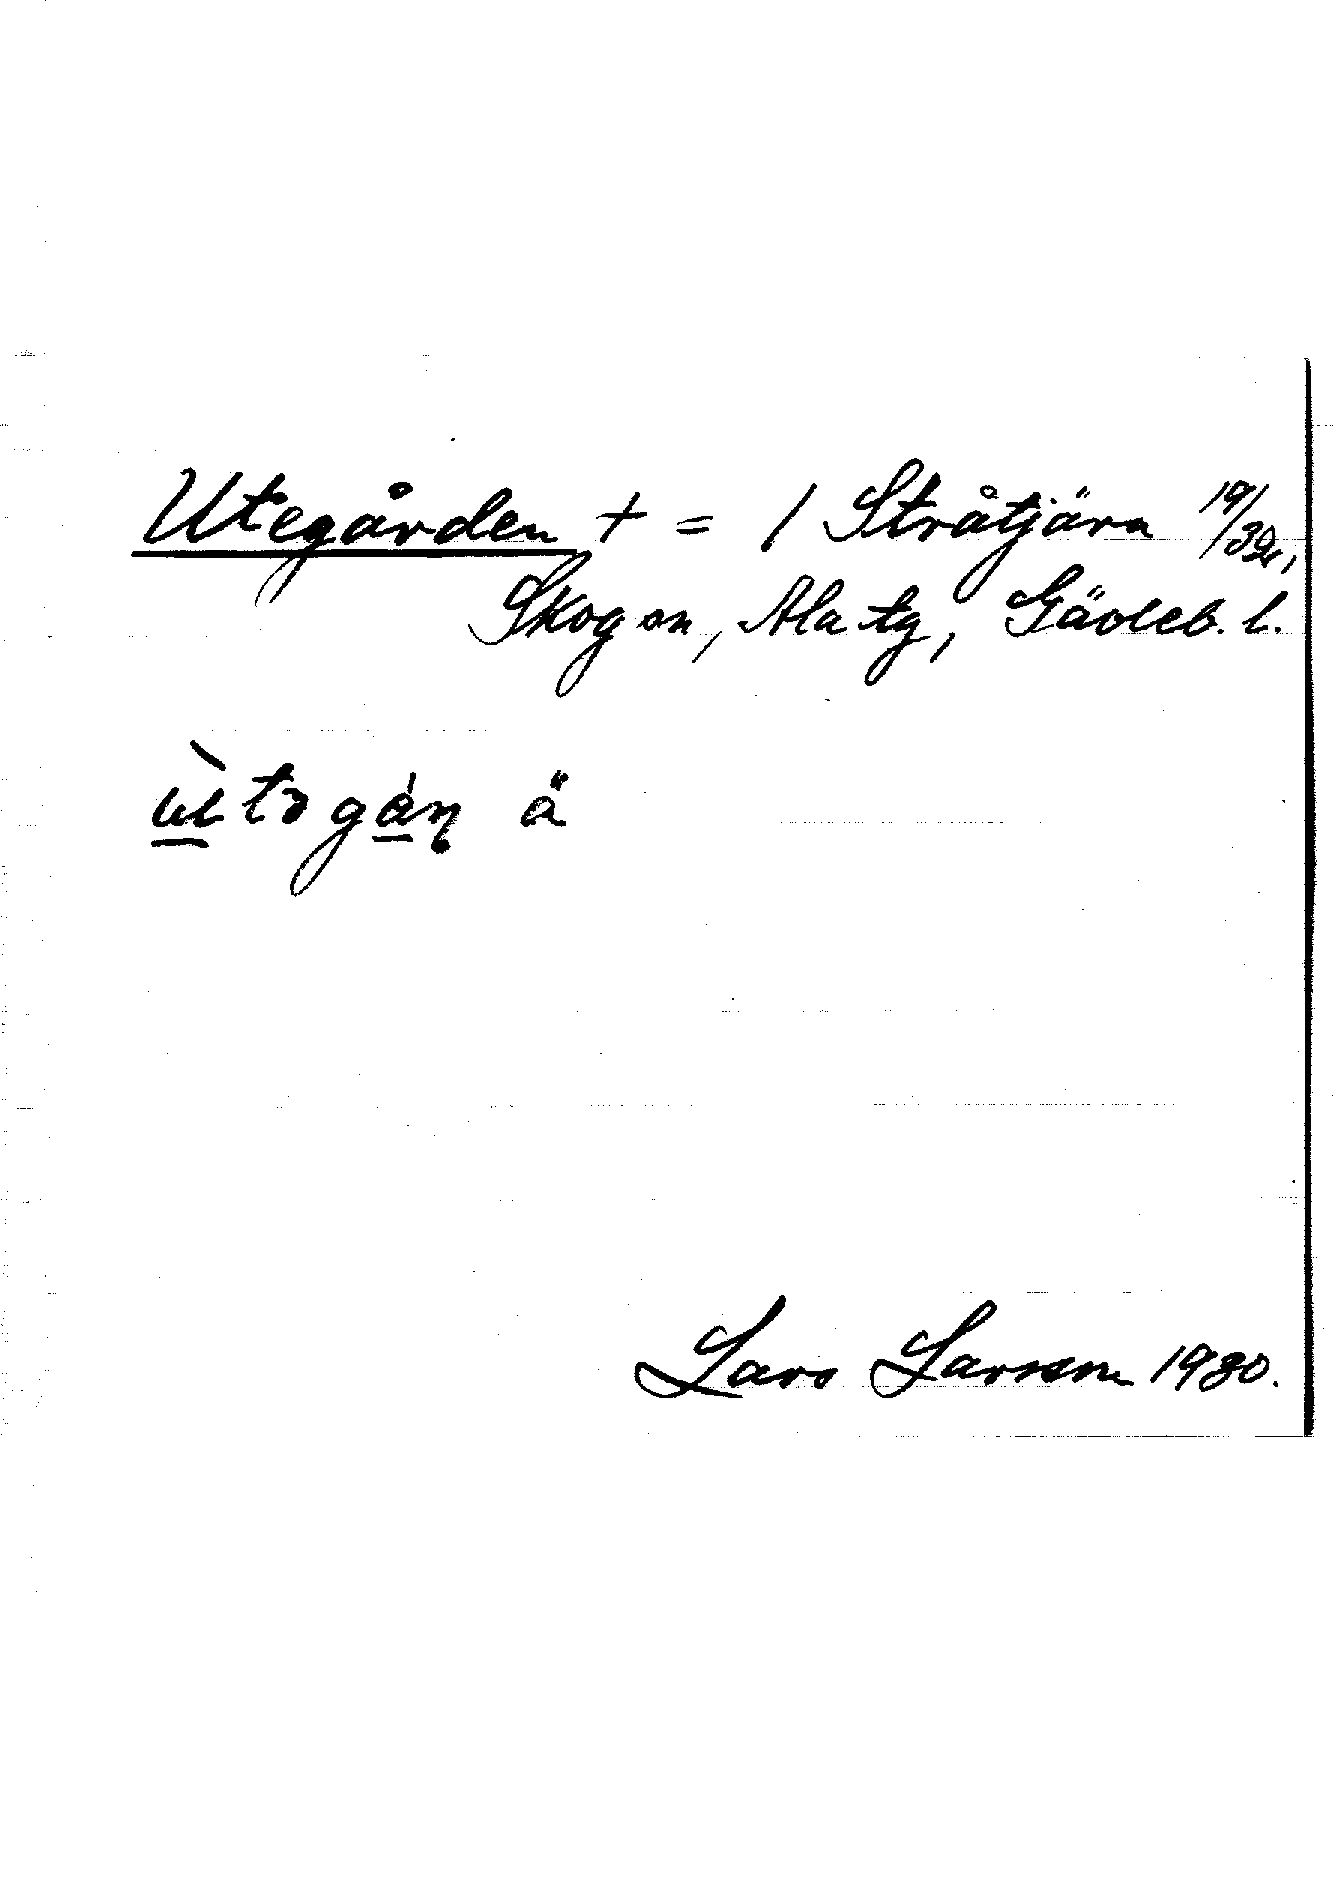 Utegården + = / Stråtjära 19/32,
Skogen, Ala tg, Gävleb. l.
ùtəgán ä
Lars Larsson 1930.